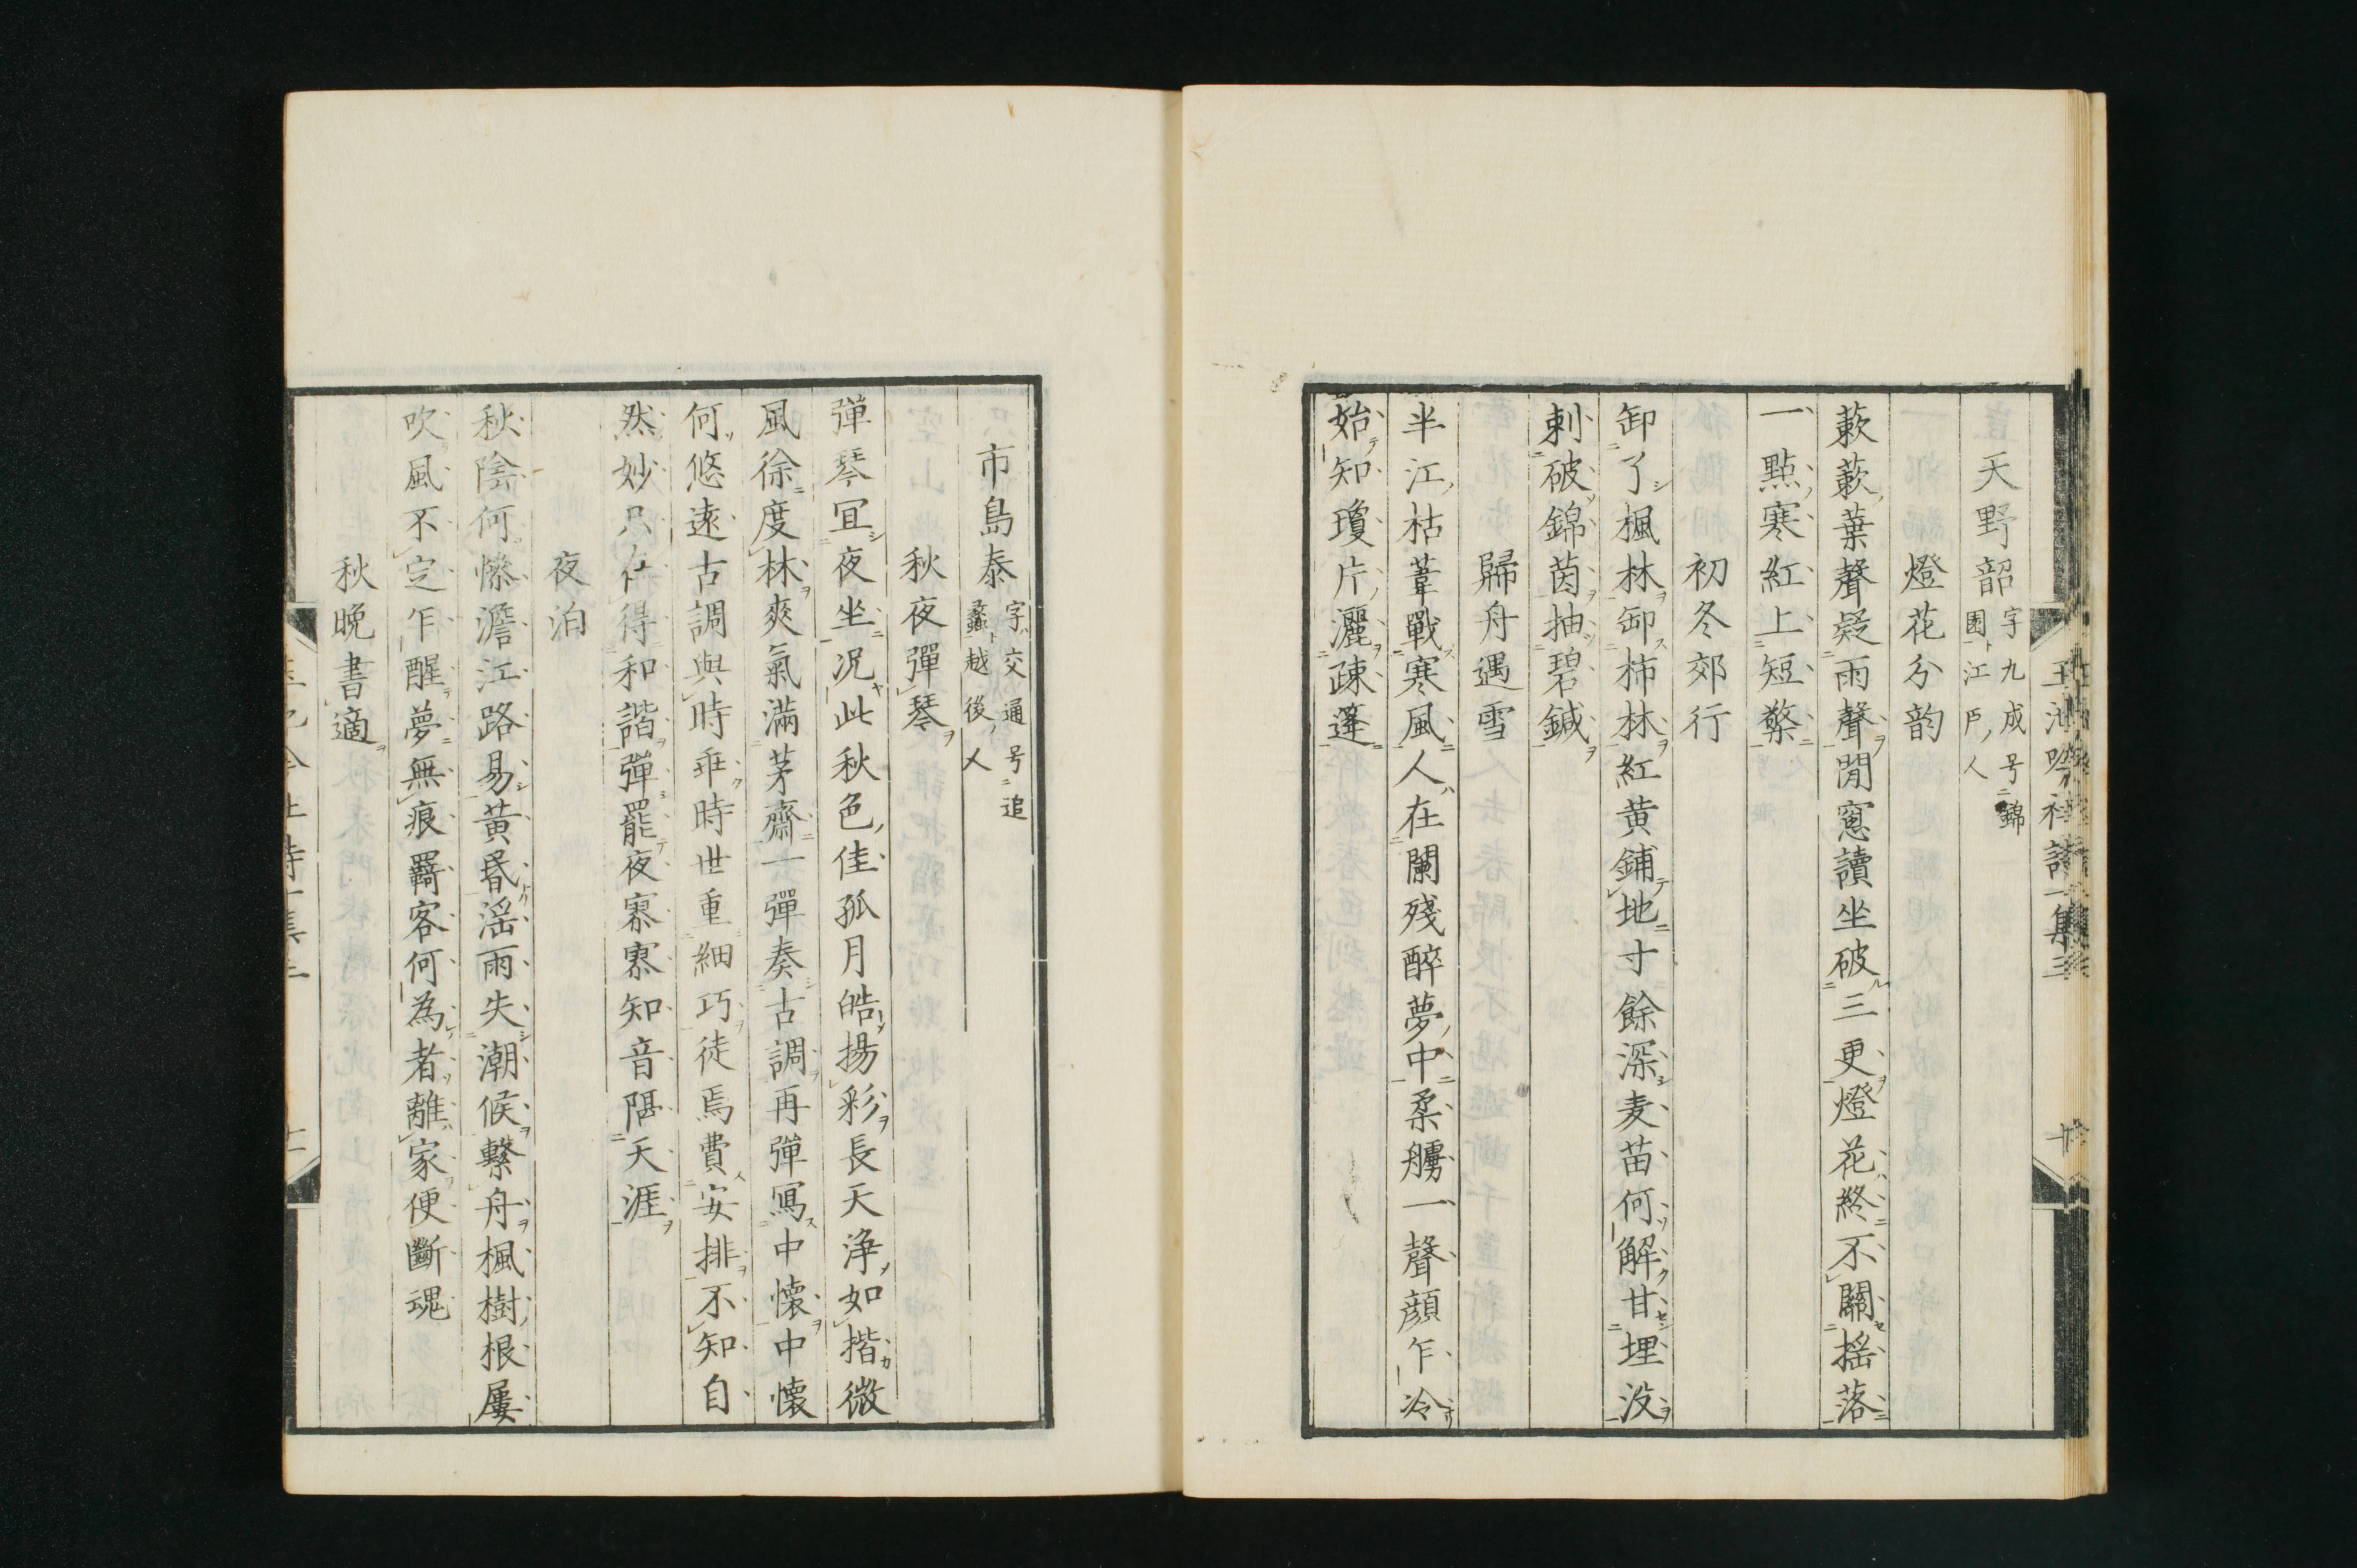 天野韶 字九成号錦園江戸人
燈花分韵
蔌蔌葉聲疑雨聲閒窓讀坐破三更燈花終不關揺落
一點寒紅上短檠
初冬郊行
卸了楓林卸柿林紅黄鋪地寸餘深麦苗何解甘埋没
刺破錦茵抽碧鍼
歸舟遇雪
半江枯葦戰寒風人在闌殘醉夢中柔艣一聲顔乍冷
始知瓊片灑疎篷
市島泰 字交通号追蠡越後人
秋夜彈琴
彈琴冝夜坐况此秋色佳孤月皓揚彩長天浄如揩微
風徐度林爽氣滿茅齋一彈奏古調再彈寫中懷中懷
何悠遠古調與時乖時世重細巧徒焉費安排不知自
然妙只在得和諧彈罷夜寥寥知音隔天涯
夜泊
秋陰何慘澹江路易黄昏滛雨失潮候繋舟楓樹根屢
吹風不定乍醒夢無痕羇客何為者離家便斷魂
秋晩書適